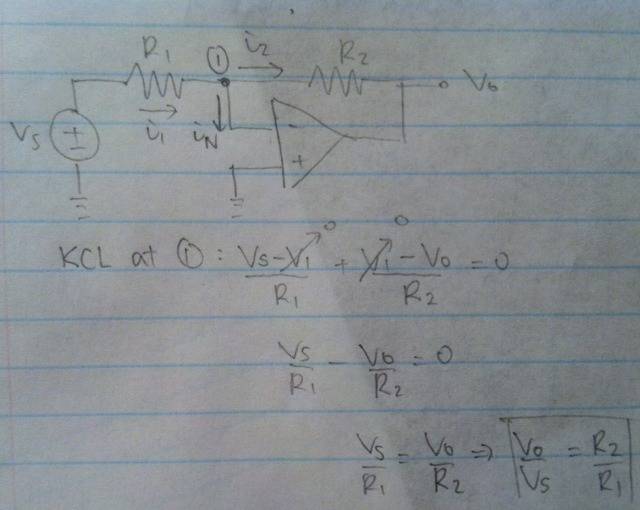 R₁ ① i₂ R₂
V₀
Vs ± i₁ iN - +
KCL at ① : (Vs - V₁)/R₁ + (V₁ - V₀)/R₂ = 0
0 0
Vs/R₁ - V₀/R₂ = 0
Vs/R₁ = V₀/R₂ ⇒ V₀/Vs = R₂/R₁